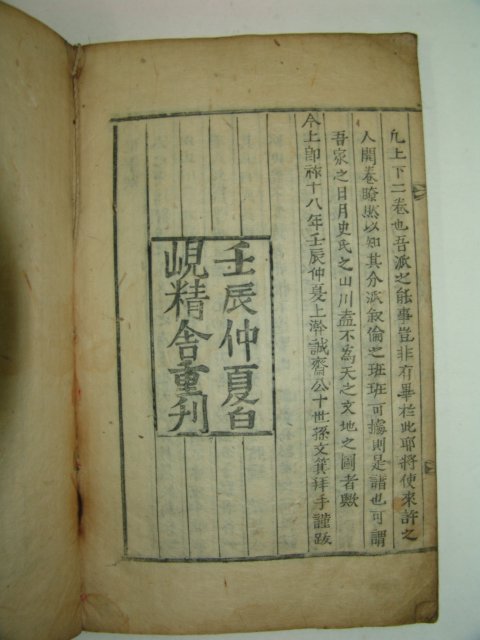 凡上下二卷也吾派之能事豈非有畢於此耶將使來許之
人開卷瞭然以知其分派叙倫之班班可據則是譜也可謂
吾家之日月史氏之山川盍不為天之文地之圖者歟
今上卽祚十八年壬辰仲夏上澣誠齋公十世孫文箕拜手謹跋
壬辰仲夏白
峴精舍重刋